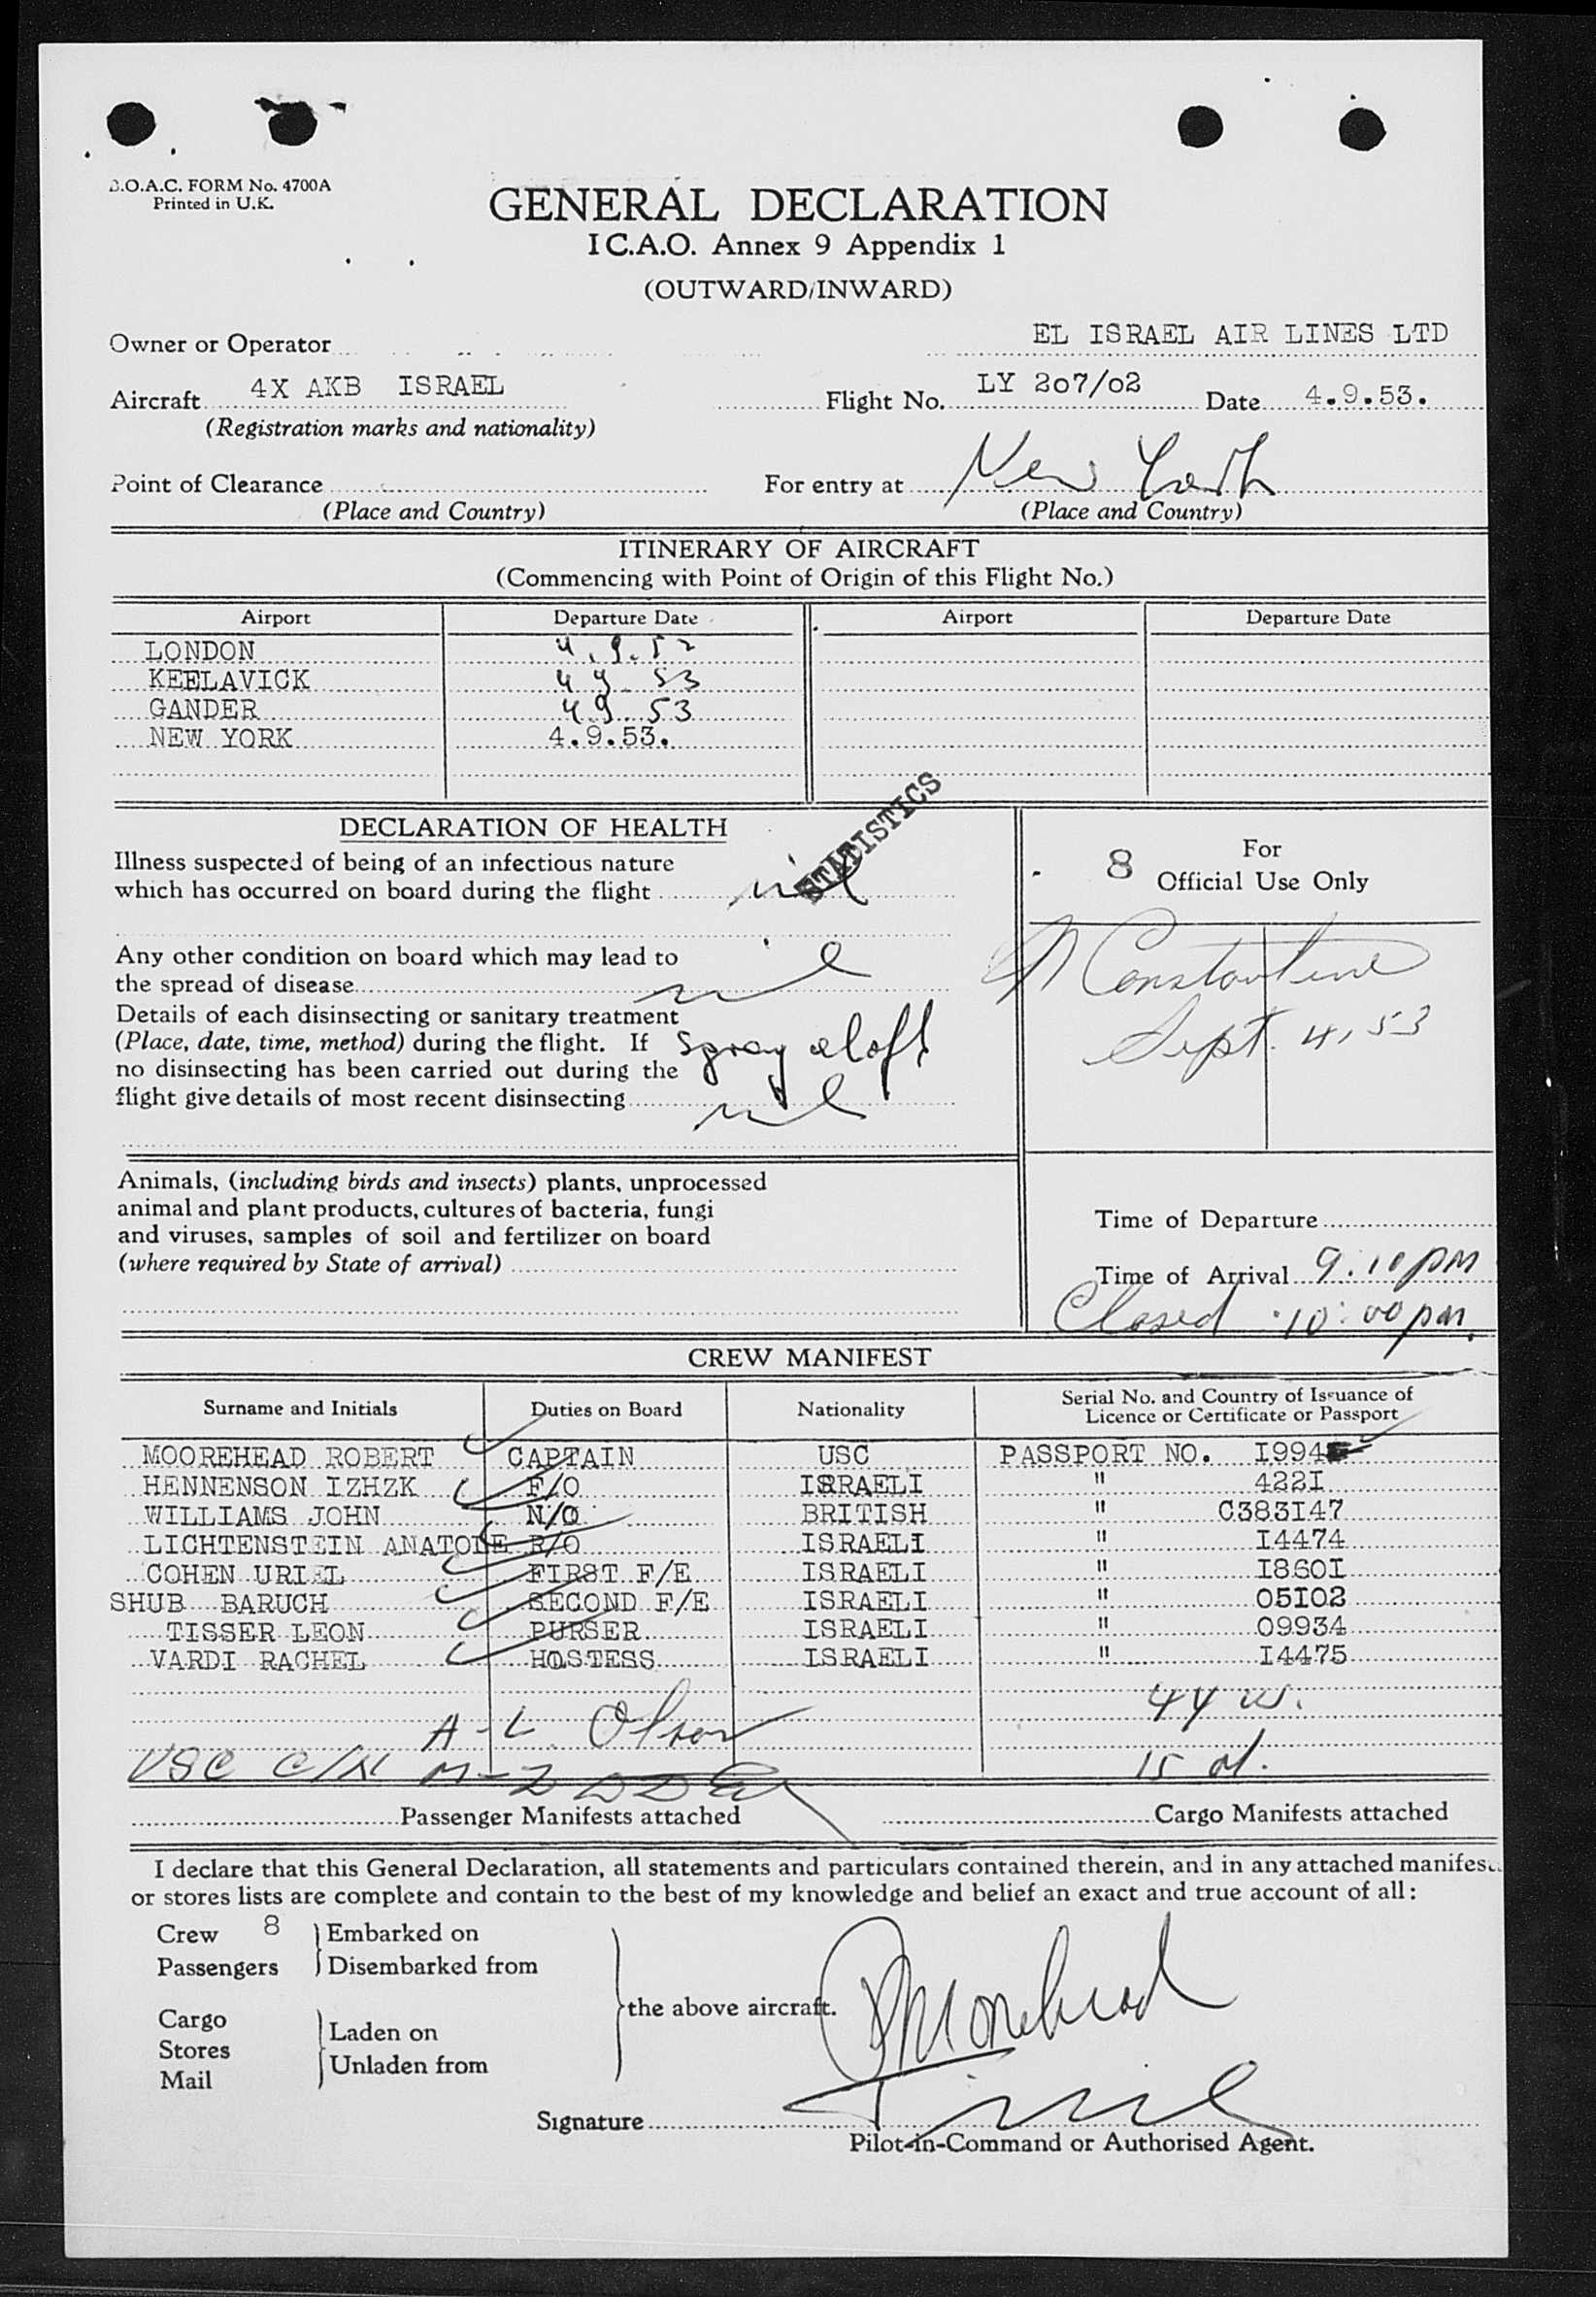 B.O.A.C. FORM No. 4700A
Printed in U.K.
GENERAL DECLARATION
I C.A.O. Annex 9 Appendix 1
(OUTWARD/INWARD)
Owner or Operator EL ISRAEL AIR LINES LTD
Aircraft 4X AKB ISRAEL Flight No. LY 207/02 Date 4.9.53.
(Registration marks and nationality)
Point of Clearance For entry at New York
(Place and Country) (Place and Country)
ITINERARY OF AIRCRAFT
(Commencing with Point of Origin of this Flight No.)
Airport Departure Date Airport Departure Date
LONDON 4.9.53
KEELAVICK 4 9 53
GANDER 4 9 53
NEW YORK 4.9.53.
STATISTICS
DECLARATION OF HEALTH
Illness suspected of being of an infectious nature
which has occurred on board during the flight nil
Any other condition on board which may lead to
the spread of disease nil
Details of each disinsecting or sanitary treatment
(Place, date, time, method) during the flight. If spray aloft
no disinsecting has been carried out during the
flight give details of most recent disinsecting nil
8 For
Official Use Only
M Constantine
Sept. 4, 53
Animals, (including birds and insects) plants, unprocessed
animal and plant products, cultures of bacteria, fungi
and viruses, samples of soil and fertilizer on board
(where required by State of arrival)
Time of Departure
Time of Arrival 9:10 PM
Closed 10:00 pm.
CREW MANIFEST
Surname and Initials Duties on Board Nationality Serial No. and Country of Issuance of
Licence or Certificate or Passport
MOOREHEAD ROBERT CAPTAIN USC PASSPORT NO. I994
HENNENSON IZHZK F/O ISRAELI " 422I
WILLIAMS JOHN N/O BRITISH " C383I47
LICHTENSTEIN ANATOLE R/O ISRAELI " I4474
COHEN URIEL FIRST F/E ISRAELI " I860I
SHUB BARUCH SECOND F/E ISRAELI " 05I02
TISSER LEON PURSER ISRAELI " 09934
VARDI RACHEL HOSTESS ISRAELI " I4475
44 w.
A-L Olson
USC C/N M-Z 15 d.
Passenger Manifests attached Cargo Manifests attached
I declare that this General Declaration, all statements and particulars contained therein, and in any attached manifes
or stores lists are complete and contain to the best of my knowledge and belief an exact and true account of all:
Crew 8 Embarked on
Passengers Disembarked from
the above aircraft.
Cargo
Laden on
Stores
Unladen from
Mail
R Moorehead
nil
Signature
Pilot-in-Command or Authorised Agent.